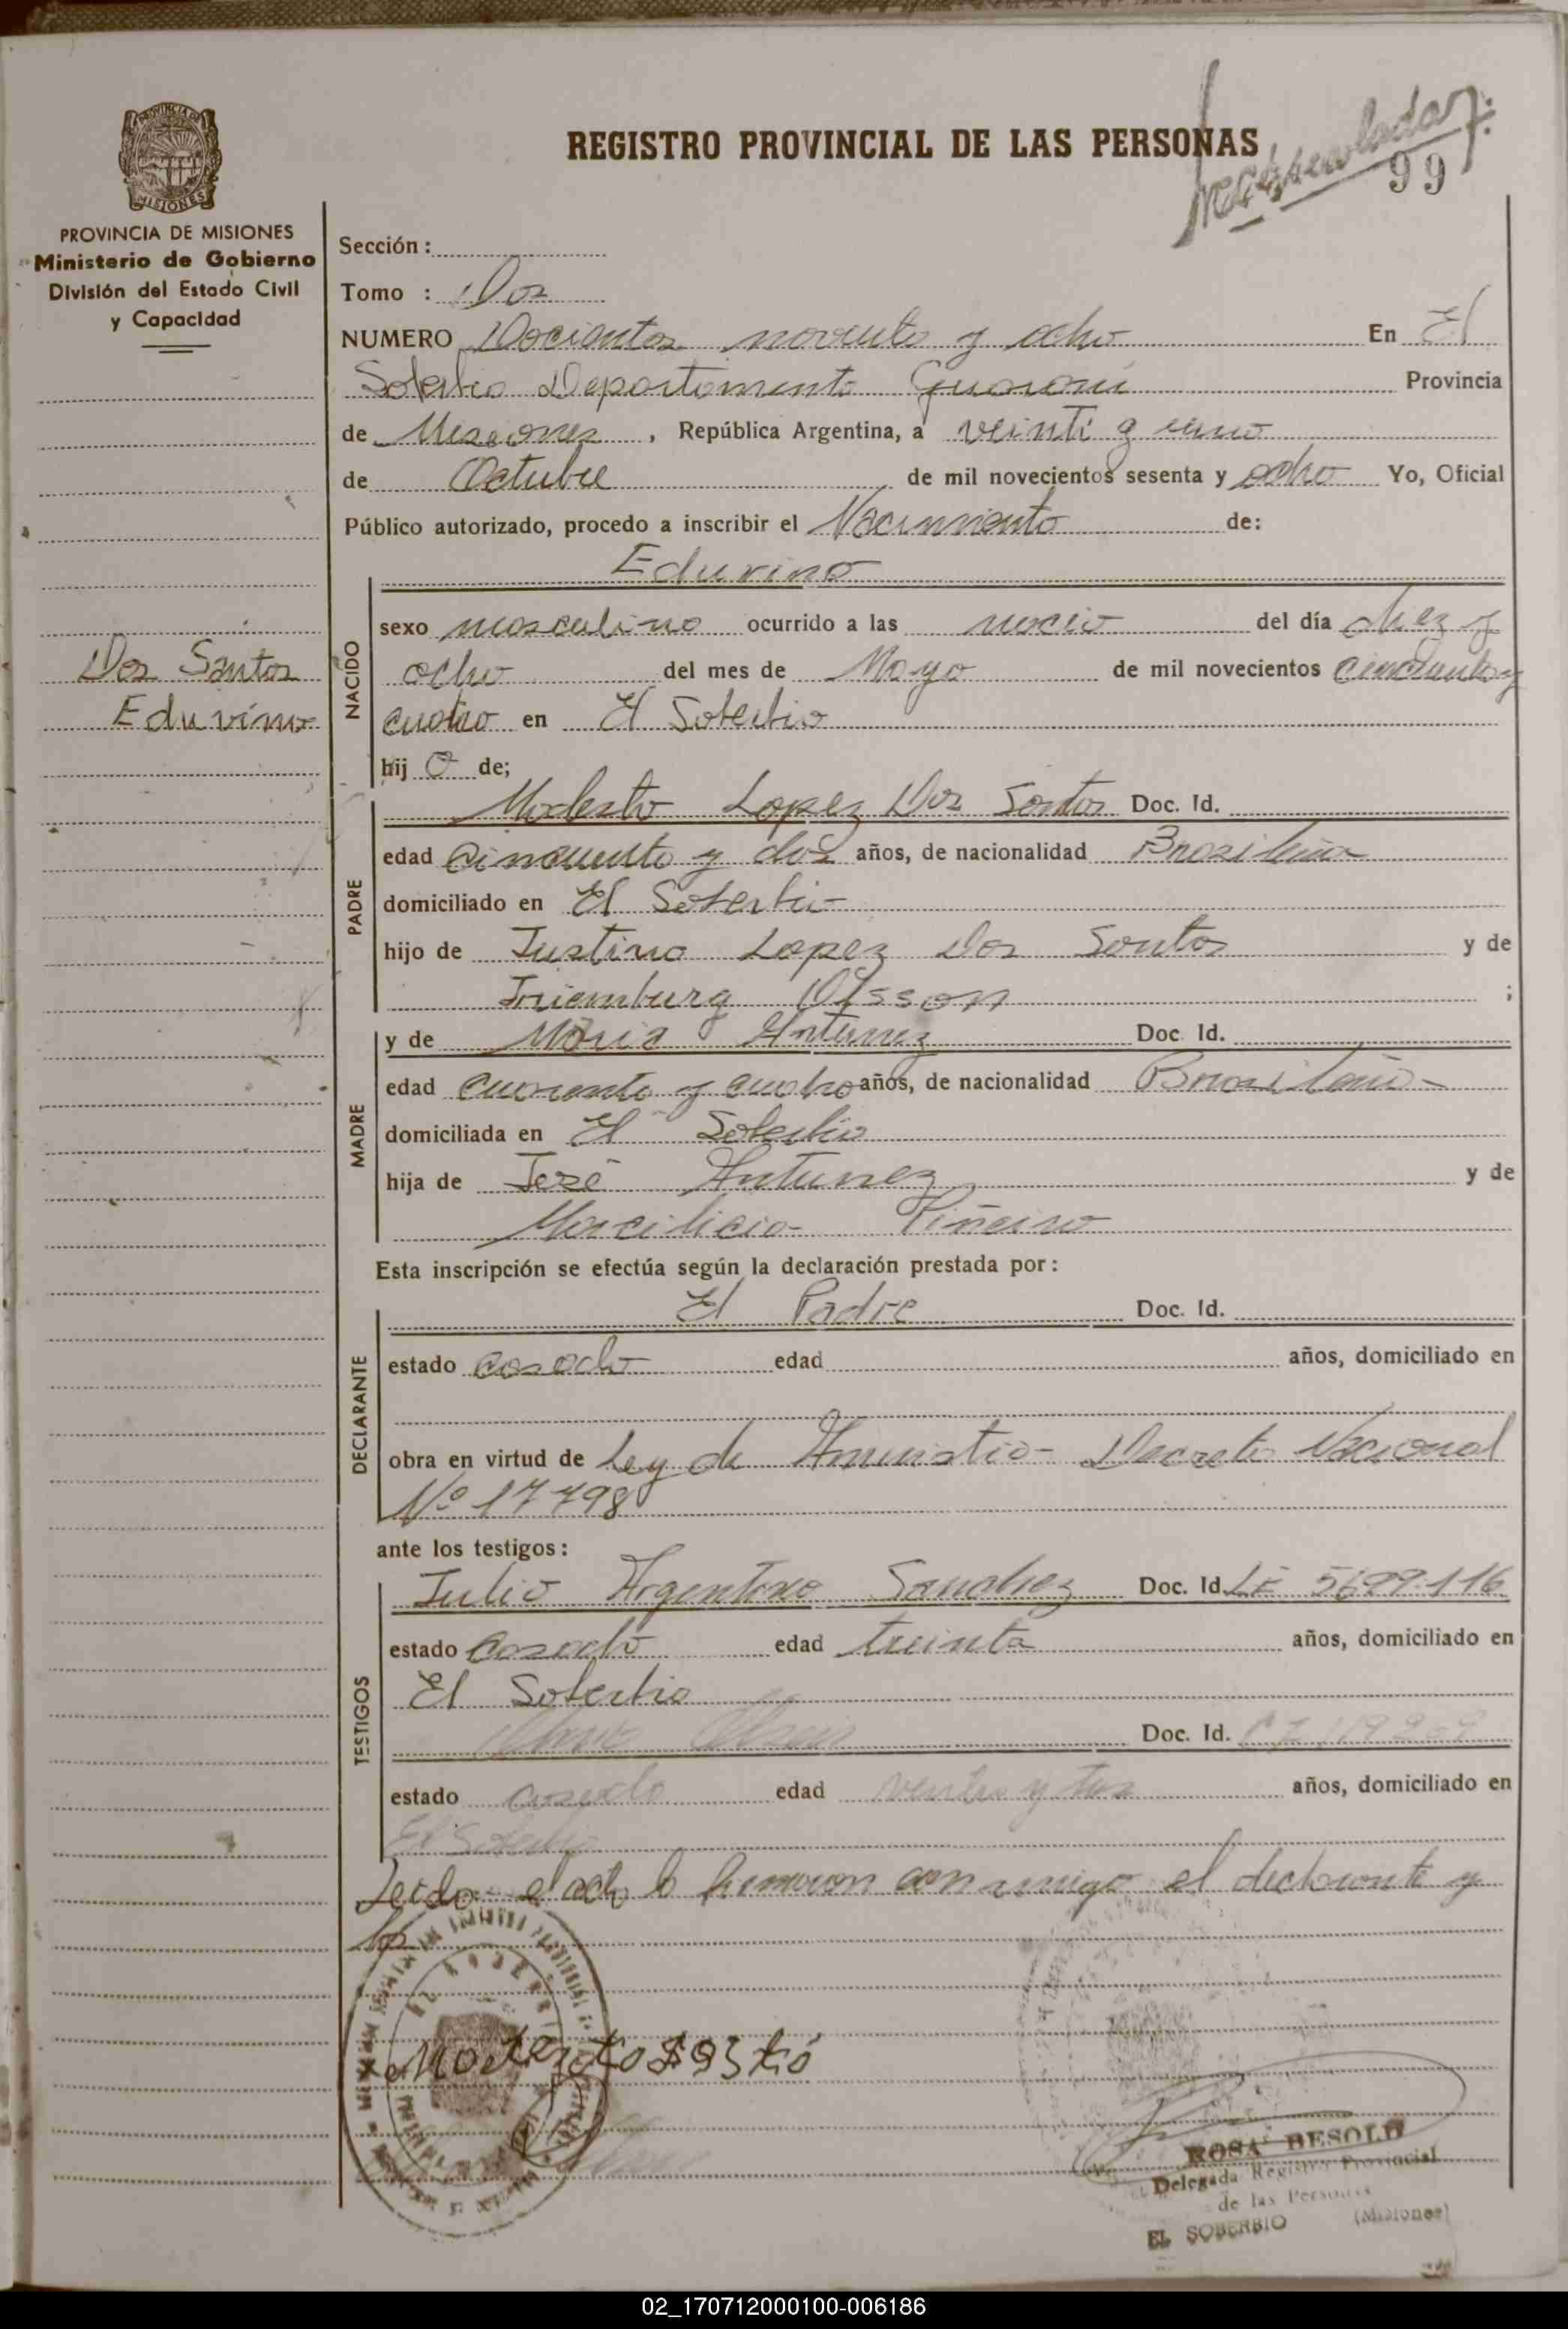 PROVINCIA DE MISIONES
Ministerio de Gobierno
División del Estado Civil
y Capacidad
REGISTRO PROVINCIAL DE LAS PERSONAS
99
Sección :
Tomo : Dos
NUMERO Docientos noventa y ocho En El
Soberbio Departamento Guaraní Provincia
de Misiones , República Argentina, a veinti y uno
de Octubre de mil novecientos sesenta y ocho Yo, Oficial
Público autorizado, procedo a inscribir el Nacimiento de:
Dos Santos
Eduvino
NACIDO
Eduvino
sexo masculino ocurrido a las del día diez y
ocho del mes de Mayo de mil novecientos cincuenta y
cuatro en El Soberbio
hij o de;
PADRE
Modesto Lopez Dos Santos Doc. Id.
edad cincuenta y dos años, de nacionalidad Brasileña
domiciliado en El Soberbio
hijo de Justino Lopez Dos Santos y de
;
MADRE
y de Maria Antunez Doc Id.
edad cuarenta y cuatro años, de nacionalidad Brasileña
domiciliada en El Soberbio
hija de José Antunez y de
Piñeiro
Esta inscripción se efectúa según la declaración prestada por :
DECLARANTE
El Padre Doc. Id.
estado casado edad años, domiciliado en
obra en virtud de Ley de Amnistia Decreto Nacional
Nº 17798
ante los testigos :
TESTIGOS
Julio Argentino Sanchez Doc. Id. LE 5.699.116
estado casado edad treinta años, domiciliado en
El Soberbio
Doc. Id.
estado casado edad años, domiciliado en
El Soberbio
Leida el acta la firmaron conmigo el declarante y
los
ROSA BESOLD
Delegada Registro Provincial
de las Personas
EL SOBERBIO (Misiones)
02_170712000100-006186